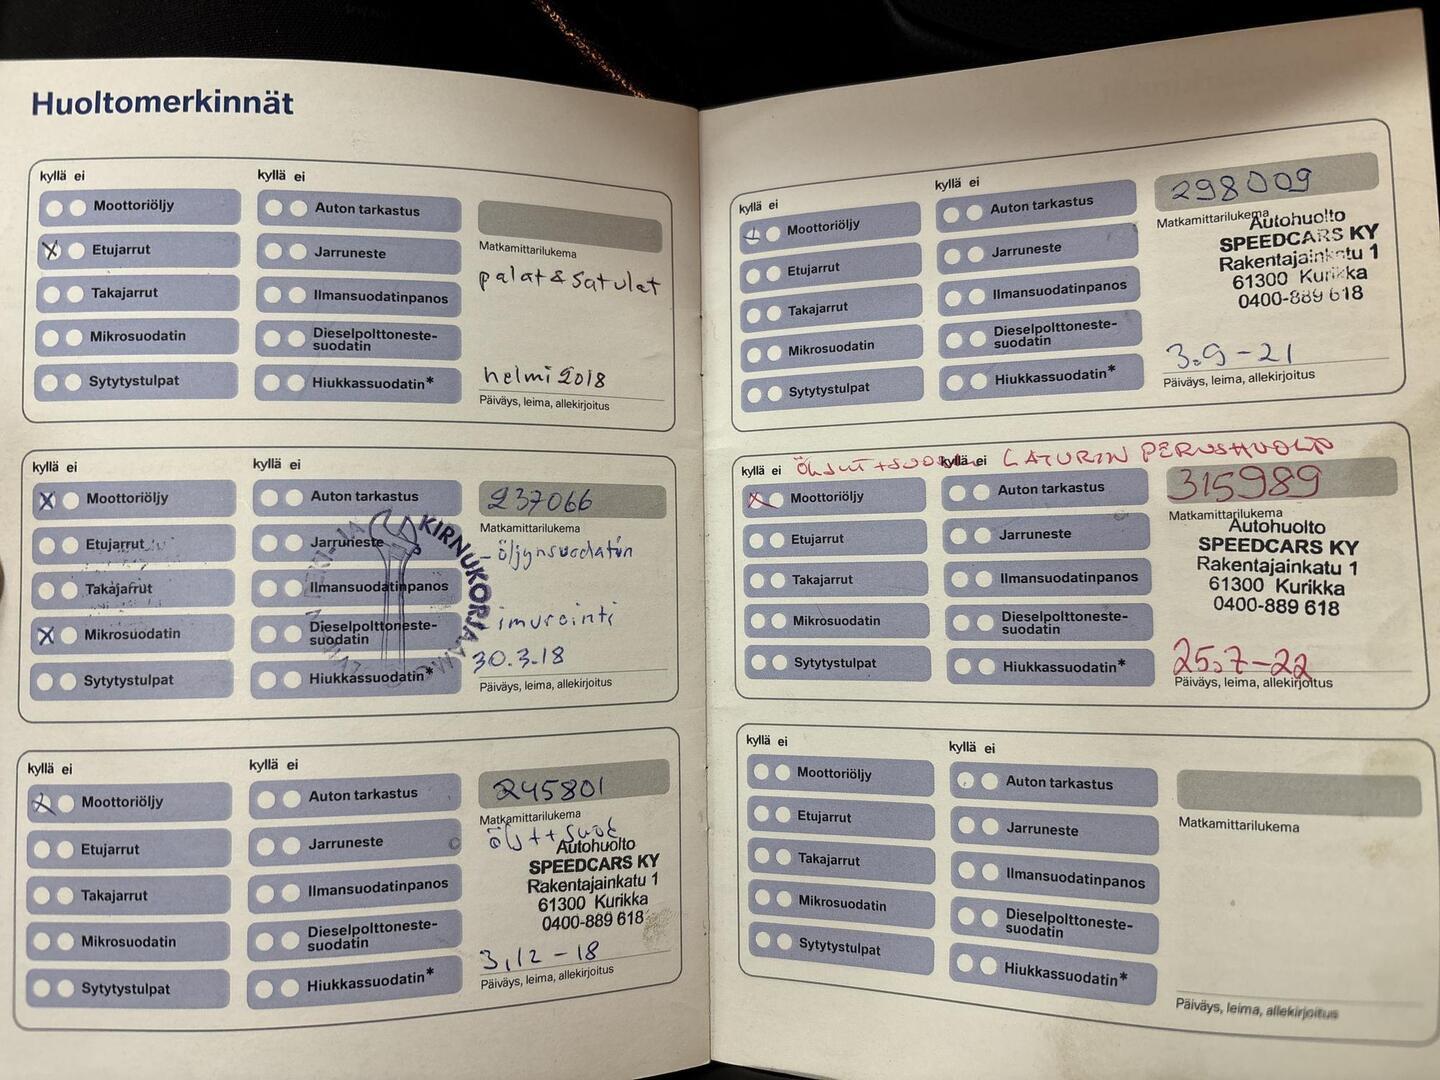 Huoltomerkinnät
kyllä ei
kyllä ei
Moottoriöljy
Auton tarkastus
Etujarrut
Jarruneste
Matkamittarilukema
palat & satulat
Takajarrut
Ilmansuodatinpanos
Mikrosuodatin
Dieselpolttoneste-
suodatin
Sytytystulpat
Hiukkassuodatin*
helmi 2018
Päiväys, leima, allekirjoitus
kyllä ei
kyllä ei
Moottoriöljy
Auton tarkastus
237066
Matkamittarilukema
Etujarrut
Jarruneste
KIRNUKORJAAMO
- öljynsuodatin
Takajarrut
Ilmansuodatinpanos
imurointi
Mikrosuodatin
Dieselpolttoneste-
suodatin
30.3.18
Sytytystulpat
Hiukkassuodatin*
Päiväys, leima, allekirjoitus
kyllä ei
kyllä ei
Moottoriöljy
Auton tarkastus
245801
Matkamittarilukema
Etujarrut
Jarruneste
Autohuolto
SPEEDCARS KY
Takajarrut
Ilmansuodatinpanos
Rakentajainkatu 1
61300 Kurikka
0400-889 618
Mikrosuodatin
Dieselpolttoneste-
suodatin
3,12-18
Sytytystulpat
Hiukkassuodatin*
Päiväys, leima, allekirjoitus
kyllä ei
kyllä ei
298009
Moottoriöljy
Auton tarkastus
Matkamittarilukema
Autohuolto
SPEEDCARS KY
Etujarrut
Jarruneste
Rakentajainkatu 1
61300 Kurikka
0400-889 618
Takajarrut
Ilmansuodatinpanos
Mikrosuodatin
Dieselpolttoneste-
suodatin
3.9-21
Sytytystulpat
Hiukkassuodatin*
Päiväys, leima, allekirjoitus
LATURIN PERUSHUOLTO
kyllä ei
kyllä ei
Moottoriöljy
Auton tarkastus
315989
Matkamittarilukema
Autohuolto
Etujarrut
Jarruneste
SPEEDCARS KY
Rakentajainkatu 1
Takajarrut
Ilmansuodatinpanos
61300 Kurikka
0400-889 618
Mikrosuodatin
Dieselpolttoneste-
suodatin
25.7-22
Sytytystulpat
Hiukkassuodatin*
Päiväys, leima, allekirjoitus
kyllä ei
kyllä ei
Moottoriöljy
Auton tarkastus
Etujarrut
Jarruneste
Matkamittarilukema
Takajarrut
Ilmansuodatinpanos
Mikrosuodatin
Dieselpolttoneste-
suodatin
Sytytystulpat
Hiukkassuodatin*
Päiväys, leima, allekirjoitus